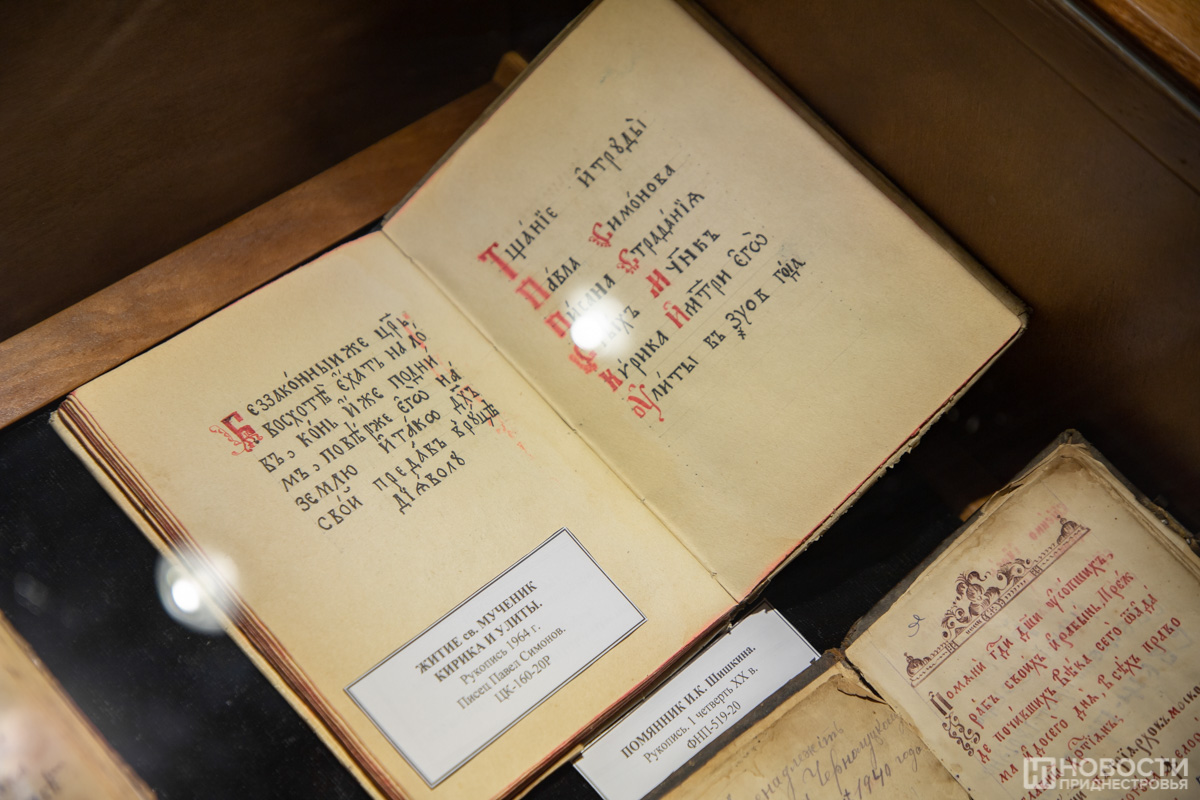 Беззако́нныи же цр҃ь
восхотѣ е҆́хать на ло
въ, конь и҆́же подни
мъ, повѣрже є҆го̀ на
землю и҆ та́кѡ дх҃ъ
сво́й преда́въ врꙋ́цѣ
дїѧ́волꙋ
Тща́нїе и҆ трꙋды̀
Па́вла Симо́нова
пи́сана Страда́нїѧ
мч҃нкъ
Ки́рика И҆ мт҃ри є҆гѡ̀
Оу҆ли́ты въ ҂зуов года̀
ЖИТИЕ св. МУЧЕНИК
КИРИКА И УЛИТЫ.
Рукопись 1964 г.
Писец Павел Симонов.
ЦК-160-20Р
ПОМЯННИК И.К. Шишкина.
Рукопись. 1 четверть XX в.
ФНП-519-20
Помѧни гдⷭ҇и дш҃и оу҆со́пшихъ,
ра́бъ свои́хъ и҆ рабы́нь. Пре́ж
де почи́вшихъ
ма и҆ до сего̀ днѧ̀,
1940 года
НОВОСТИ
ПРИДНЕСТРОВЬЯ